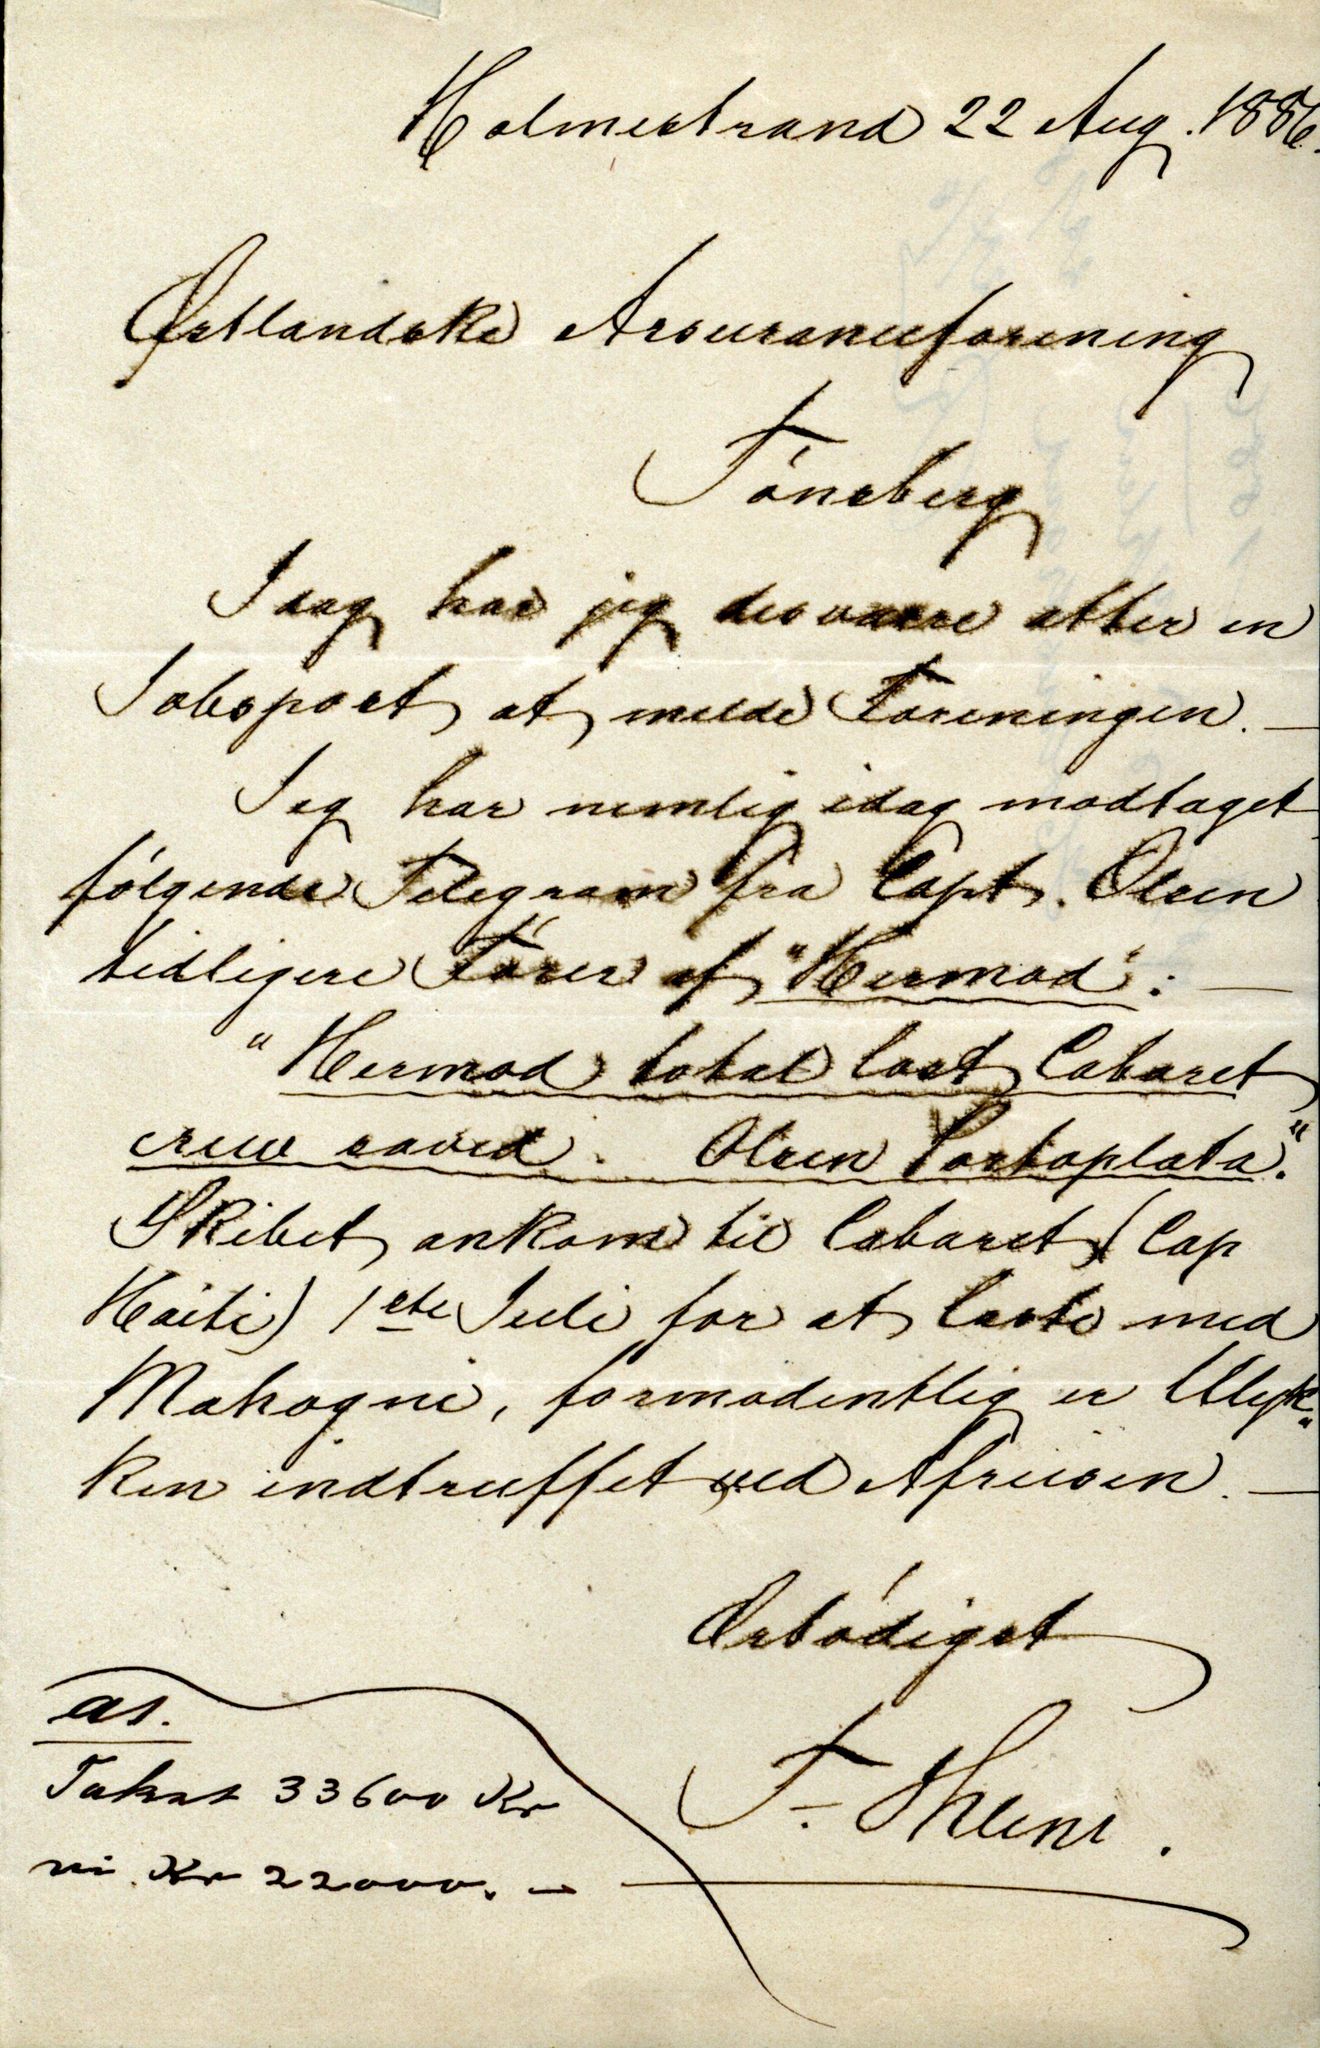 Holmestrand 22 Aug. 1886.
Østlandske Assuranceforening
Tónsberg
Idag har jeg desværre atter en
Jobspost at melde Foreningen. —
Jeg har nemlig idag modtaget
fólgende Telegram fra Capt. Olsen
tidligere Fórer af "Hermod": —
"Hermod total lost Cabaret
crew saved. Olsen Portoplata."
Skibet ankom til Cabaret (Cap
Haiti) 1ste Juli for at laste med
Mahogni, formodentlig er Ulyk„
ken indtruffet ved Afreisen. —
Ærbódigst
F.
Takst 33600 Kr
vi Kr 22000. —